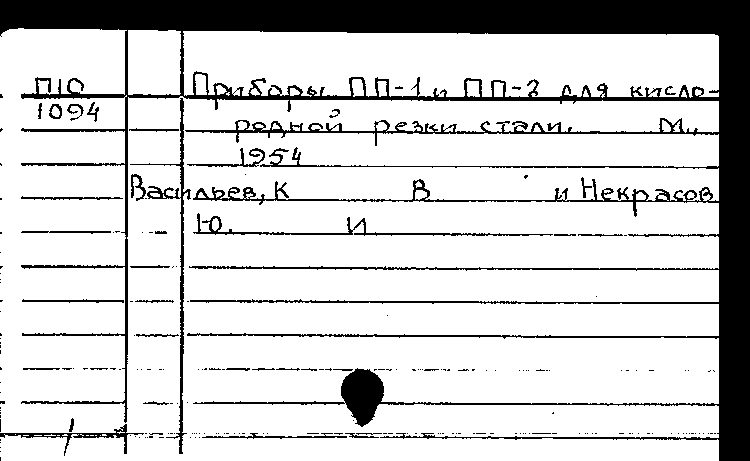 П10 Приборы ПП-1 и ПП-2 для кисло-
1094 родной резки стали. М.,
1954
Васильев, К В и Некрасов
Ю. И